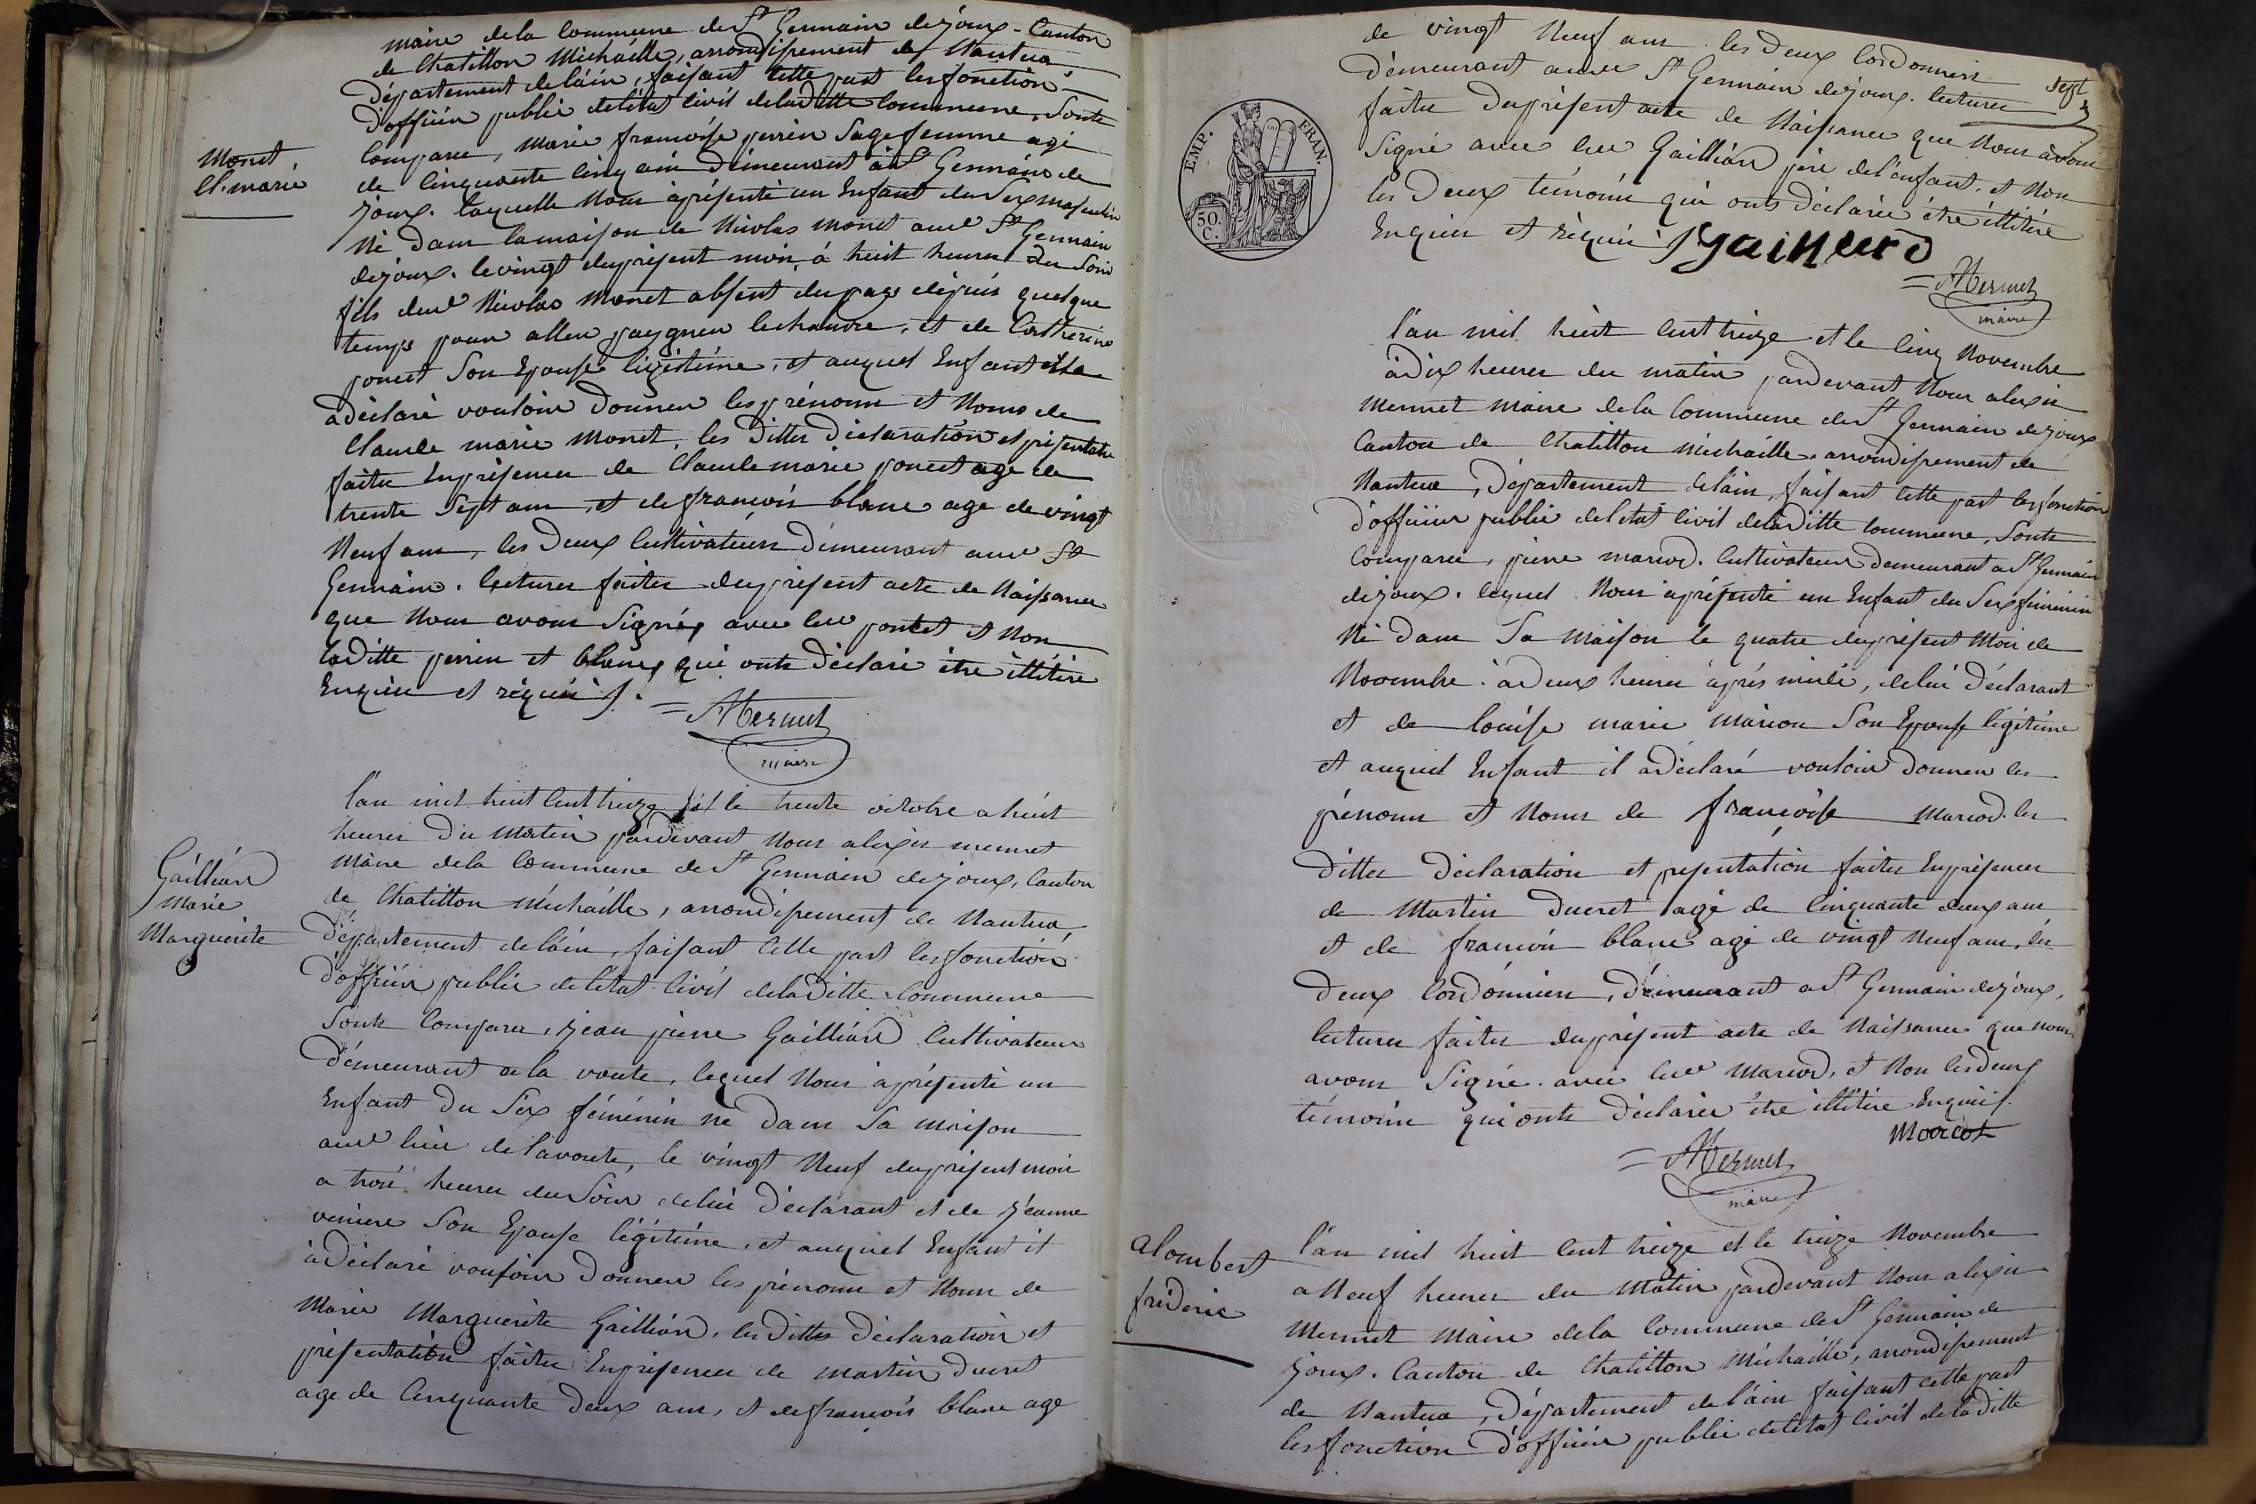 maire de la Commune de St Germain de joux - Canton
de Chatillon Michaille, arrondissement de Nantua
département de l'ain, faisant cette part les fonction
d'officier public de l'état civil de la ditte Commune, Sonts
comparu, marie francoise perrin Sage femme agé
de Cinquante Cinq ans demeurant à St Germain de
joux. laquelle Nous à présenté un Enfant du Sex masculin
Né dans la maison de Nicolas monet audt St Germain
de joux. le vingt du présent mois, à huit heures du Soir
fils dudt Nicolas Monet absent du pays depuis quelque
temps pour aller paygner le chanvre, et de Catherine
ponect Son Epouse légitime, et auquel Enfant elle
a déclaré vouloir donner les prénoms et Noms de
Claude marie Monet, les dittes déclaration et présentation
faites En présence de Claude marie ponect age de
trente Sept ans, et de francois blanc age de vingt
Neuf ans, les deux Cultivateurs demeurant audt St
Germain. lectures faites du présent acte de Naissance
que Nous avons Signé, avec ledt ponect et Non
la ditte perrin et blanc, qui onts déclaré être illitéré
Enquis et réquis.
= AMermet
maire
Monet,
Cl. marie
l'an mil huit Cent treize et le trente octobre a huit
heures du Matin pardevant Nous alexis mermet
Maire de la Commune de St Germain de joux, Canton
de Chatillon Michaille, arrondissement de Nantua,
département de l'ain, faisant Cette part les fonction
d'officier public de l'état Civil de la ditte Commune
Sonts Comparu, jean pierre Gaillard Cultivateur
démeurant a la voute, lequel Nous à présenté un
Enfant du Sex féminin né dans Sa Maison
audt lieu de la voute, le vingt Neuf du présent mois
a trois heures du Soir de lui déclarant et de jeanne
Son Epouse légitime, et auquel Enfant il
à déclaré vouloir donner les prénoms et Noms de
Marie Marguerite Gaillard, les dittes déclaration et
présentation faites En présence de martin ducret
age de Cinquante deux ans, et de francois blanc age
Gaillard
Marie
Marguerite
de vingt Neuf ans les deux Cordonniers
démeurant audt St Germain de joux. lectures
faites du présent acte de Naissance que Nous avons
Signé avec ledt Gaillard père de l'enfant. et Non
les deux témoins qui onts déclarée être illitéré
Enquis et réquis
sept
EMP. FRAN.
50.
C.
= AMermet
maire
l'an mil huit Cent treize et le Cinq Novembre
à dix heures du matin pardevant Nous alexis
Mermet Maire de la Commune de St Germain de joux
Canton de Chatillon michaille, arrondissement de
Nantua, Département de l'ain, faisant Cette part les fonction
d'officier public de l'etat Civil de la ditte Commune, Sonts
Comparu, pierre marcod. Cultivateur demeurant a St Germain
de joux. lequel Nous à présenté un Enfant du Sex féminin
Né dans Sa Maison le quatre du présent Mois de
Novembre. à deux heures après midi, de lui déclarant
et de louise marie marion Son Epouse légitime
et auquel Enfant il à déclaré vouloir donner les
prénoms et Noms de francoise Marcod. les
dittes déclaration et présentation faites En présence
de Martin ducret agé de Cinquante deux ans
et de francois blanc agé de vingt Neuf ans, les
deux Cordonniers, démeurant a St Germain de joux,
lectures faites du présent acte de Naissance que nous
avons Signé. avec ledt Marcod, et Non les deux
témoins qui onts déclarée être illitéré Enquis.
Marcot
= AMermet
maire
Alombert
fréderic
l'an mil huit Cent treize et le treize Novembre
a Neuf heures du Matin pardevant Nous alexis
Mermet Maire de la Commune de St Germain de
joux. Canton de Chatillon Michaille, arrondissement
de Nantua, Département de l'ain faisant cette part
les fonction d'officier public de l'etat Civil de la ditte